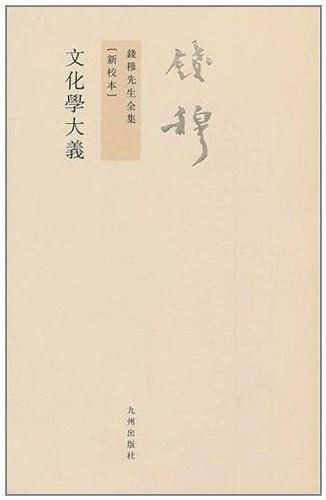 錢穆
錢穆先生全集
［新校本］
文化學大義
九州出版社